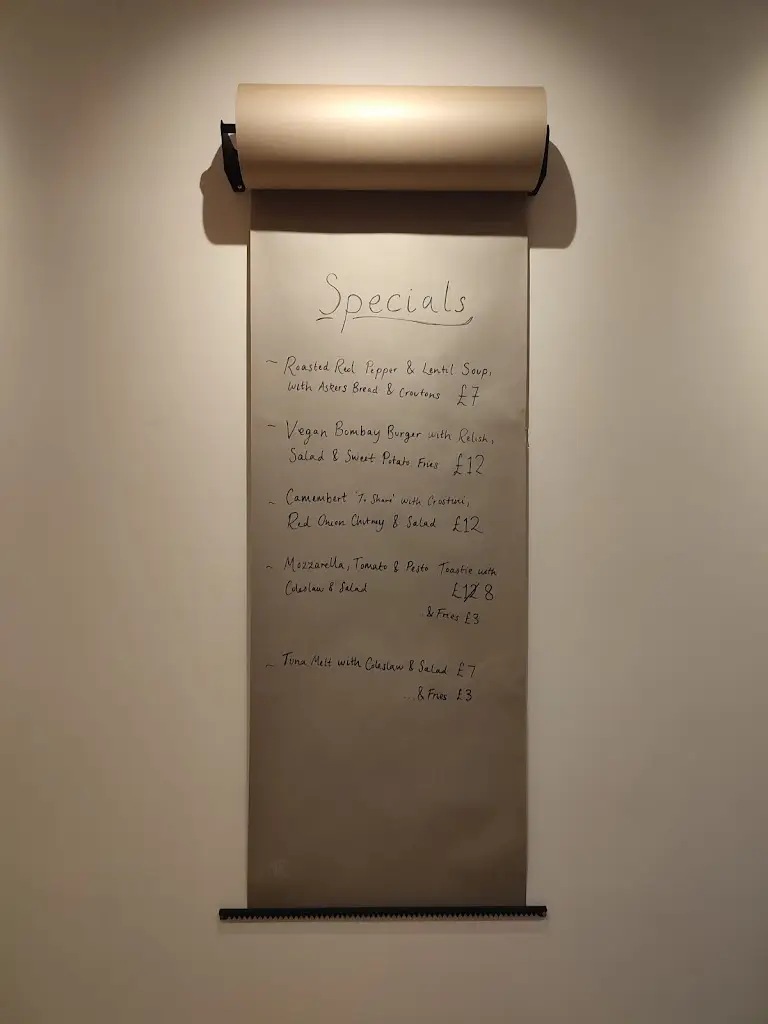 Specials
~ Roasted Red Pepper & Lentil Soup,
with Askers Bread & Croutons £7
~ Vegan Bombay Burger with Relish,
Salad & Sweet Potato Fries £12
~ Camembert 'To Share' with Crostini,
Red Onion Chutney & Salad £12
~ Mozzarella, Tomato & Pesto Toastie with
Coleslaw & Salad £12 8
..& Fries £3
~ Tuna Melt with Coleslaw & Salad £7
...& Fries £3